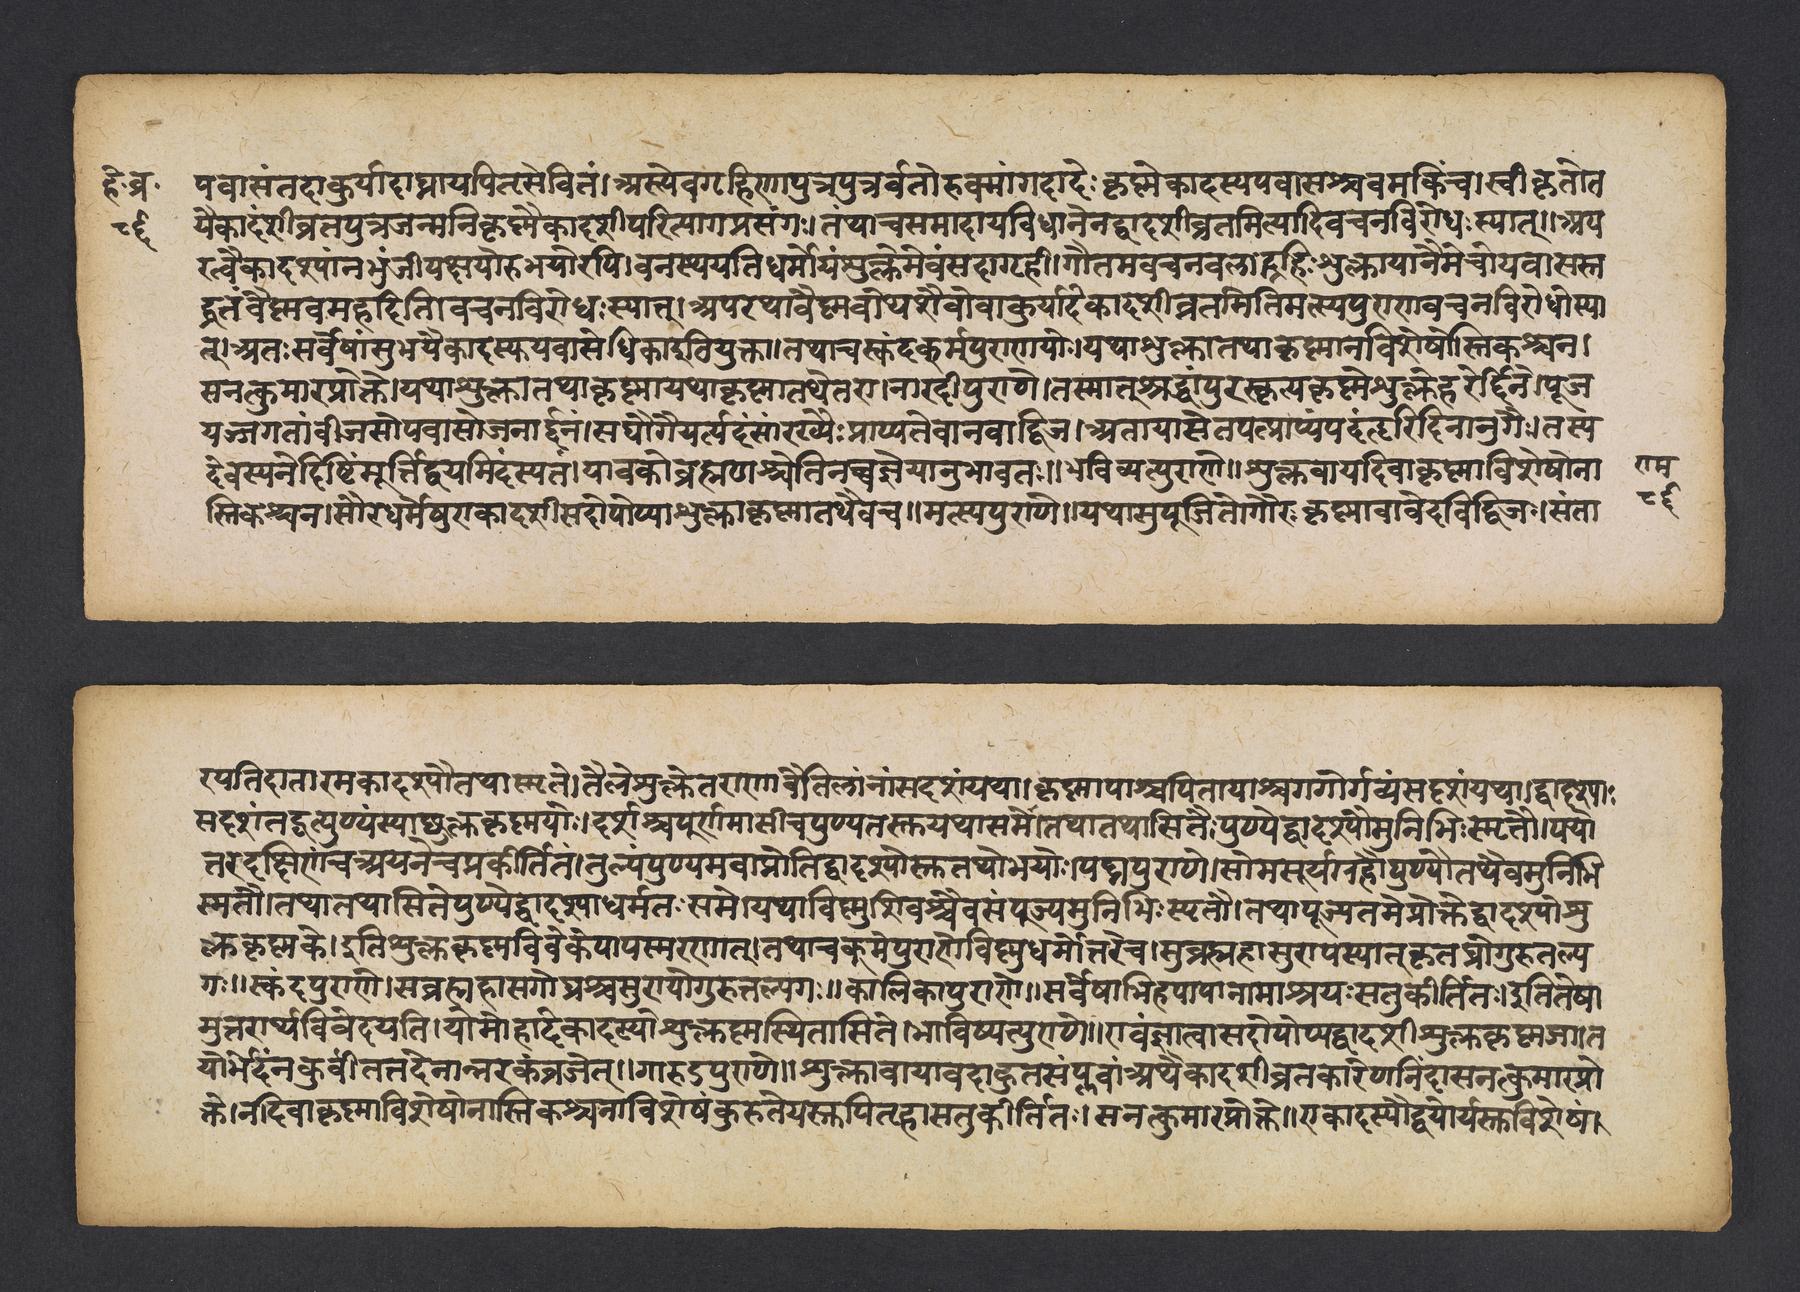 हे॰व्र॰
८६
पवासंतदाकुर्यादाघ्रायपितृसेवितं।अस्येवगृहिणापुत्रपुत्रर्वतोरुक्मांगदादेःकृष्मेकादस्यपवासश्चवमकिंच।स्वीकृतोत
येकादंशीव्रतपुत्रजन्मनिकृष्मैकादशीपरित्यागप्रसंगः।तंथाचसमादायविधानेनद्वादशीव्रतमित्यादिवचनविरोधःस्यात्॥अप
रत्वैकादश्यांनभुंजीयक्षयोरुभयोरपि।वनस्थयतिधर्मोयंशुक्लेमेवंसदागृही।गौतमवचनवला
द्रुतंवैष्मवमहदिति।वचनविरोधःस्यात्।अपरेथावैष्मवोथशैवोवाकुर्यादेकादशीव्रतमितिमत्स्यपुराणवचनविरोधोस्या
त्।अतःसर्वेषांसुभयैकादस्फयवासेधिकादुवियुक्ता।तथाचस्कंदकुर्मपुराणयोः।यथाशुक्लातथाकृष्मानविशेषोस्तिकश्चन।
सनत्कुमारप्रोक्ते।यथाशुक्लातथाकृष्मायथाकृष्मातथेतरा।नारदीपुराणे।तस्मात्श्रद्धांपुरस्कृत्यकृष्मेशुक्लेहरेर्द्दिने।पूज
यज्जगतांवीजसोपवासोजनार्द्दनं।सघौगैयर्त्पदंसांरख्यैःप्राप्यतेवानवाद्विज।अतायासेतपत्प्राप्यंपदंहरिदिनानुगैः।तस्य
देवस्यनेहिष्टिंमूर्त्तिद्वयमिदंस्यतं।यावकोव्रह्मणश्चेतिनच्चज्ञेयानुभावतः॥भविव्यत्पुराणे॥शुक्लवायदिवाकृष्माविशेषोना
स्तिकश्चन।सौरधर्मेषुएकादशीसदोपोप्याशुक्लाकृष्मातथैवच॥मत्स्यपुराणे॥यथामुपूजितोगौरुःकृष्मावावेदविद्विजः।संता
राम
८६
रपतिदातारमकादश्यौतथास्मृते।तैलेशुक्लेतराणांवैतिलांनांसदृशंयथा।कृष्मापाश्चपितायाश्चगगोर्गव्यंसदृशंयथा।द्वादश्याः
सदृशंतद्वत्पुण्यंस्याछुक्लकृष्मयोः।दर्शश्चपुर्णमासीचपुण्यतस्तयथासमे।तथातथासितेःपुण्येद्वादश्योमुनिभिःस्मृतौ।पयो
तरेदृष्टिणंचअयनेचप्रकीर्तितं।तुल्यंपुण्यमवाप्नोतिद्वादश्योस्ततथोभयोः।पद्मपुराणे।सोमसूर्यग्रहौपुण्यौतथैवमुनिभि
स्मतौ।तथातथासितेपुण्येद्वादश्पाधर्मतःसमे।यथाविष्मुशिवश्चैवसंपूज्यमुनिभिःस्मृतौ।तथापूज्यतमेप्रोक्तेद्वादश्योशु
क्लकृष्मके।इतिशुक्लकृष्मविवेकेपापस्मरणात्।तथाचकूर्मपुराणेविष्णुधर्मोत्तरेच।मुव्रह्महासुरापस्यात्कृतघ्नोगुरुतल्प
गः॥स्कंदपुराणे।सव्रह्महासगोघ्नश्चमुरापोगुरुतल्पगः॥कालिकापुराणे॥सर्वेषाभिहपापानामाश्रयःसतुकीर्तितः।इतितेषा
मुत्तरार्थ्यविवेदयति।योमोहादेकादस्योशुक्लकृष्मस्थितासिते।भाविष्यत्पुराणे॥एवंज्ञात्वासदोपोष्यद्वादशीशुक्लकृष्मजा।त
योर्भेर्दिनकुर्वीततर्देनान्नरकंव्रजेत्॥गारुडपुराणे॥शुक्लावायावदाकुतसंप्लवां।अथैकादशीव्रतकारिणनिंदासनत्कुमारप्रो
क्ते।नदिवाकृष्माविशेषोनास्तिकश्चना।विशेषंकुरुतेयस्तपितृहासतुकीर्तितः।सनत्कुमारप्रोक्ते॥एकादस्यौद्वयोर्यस्तविशेषं।